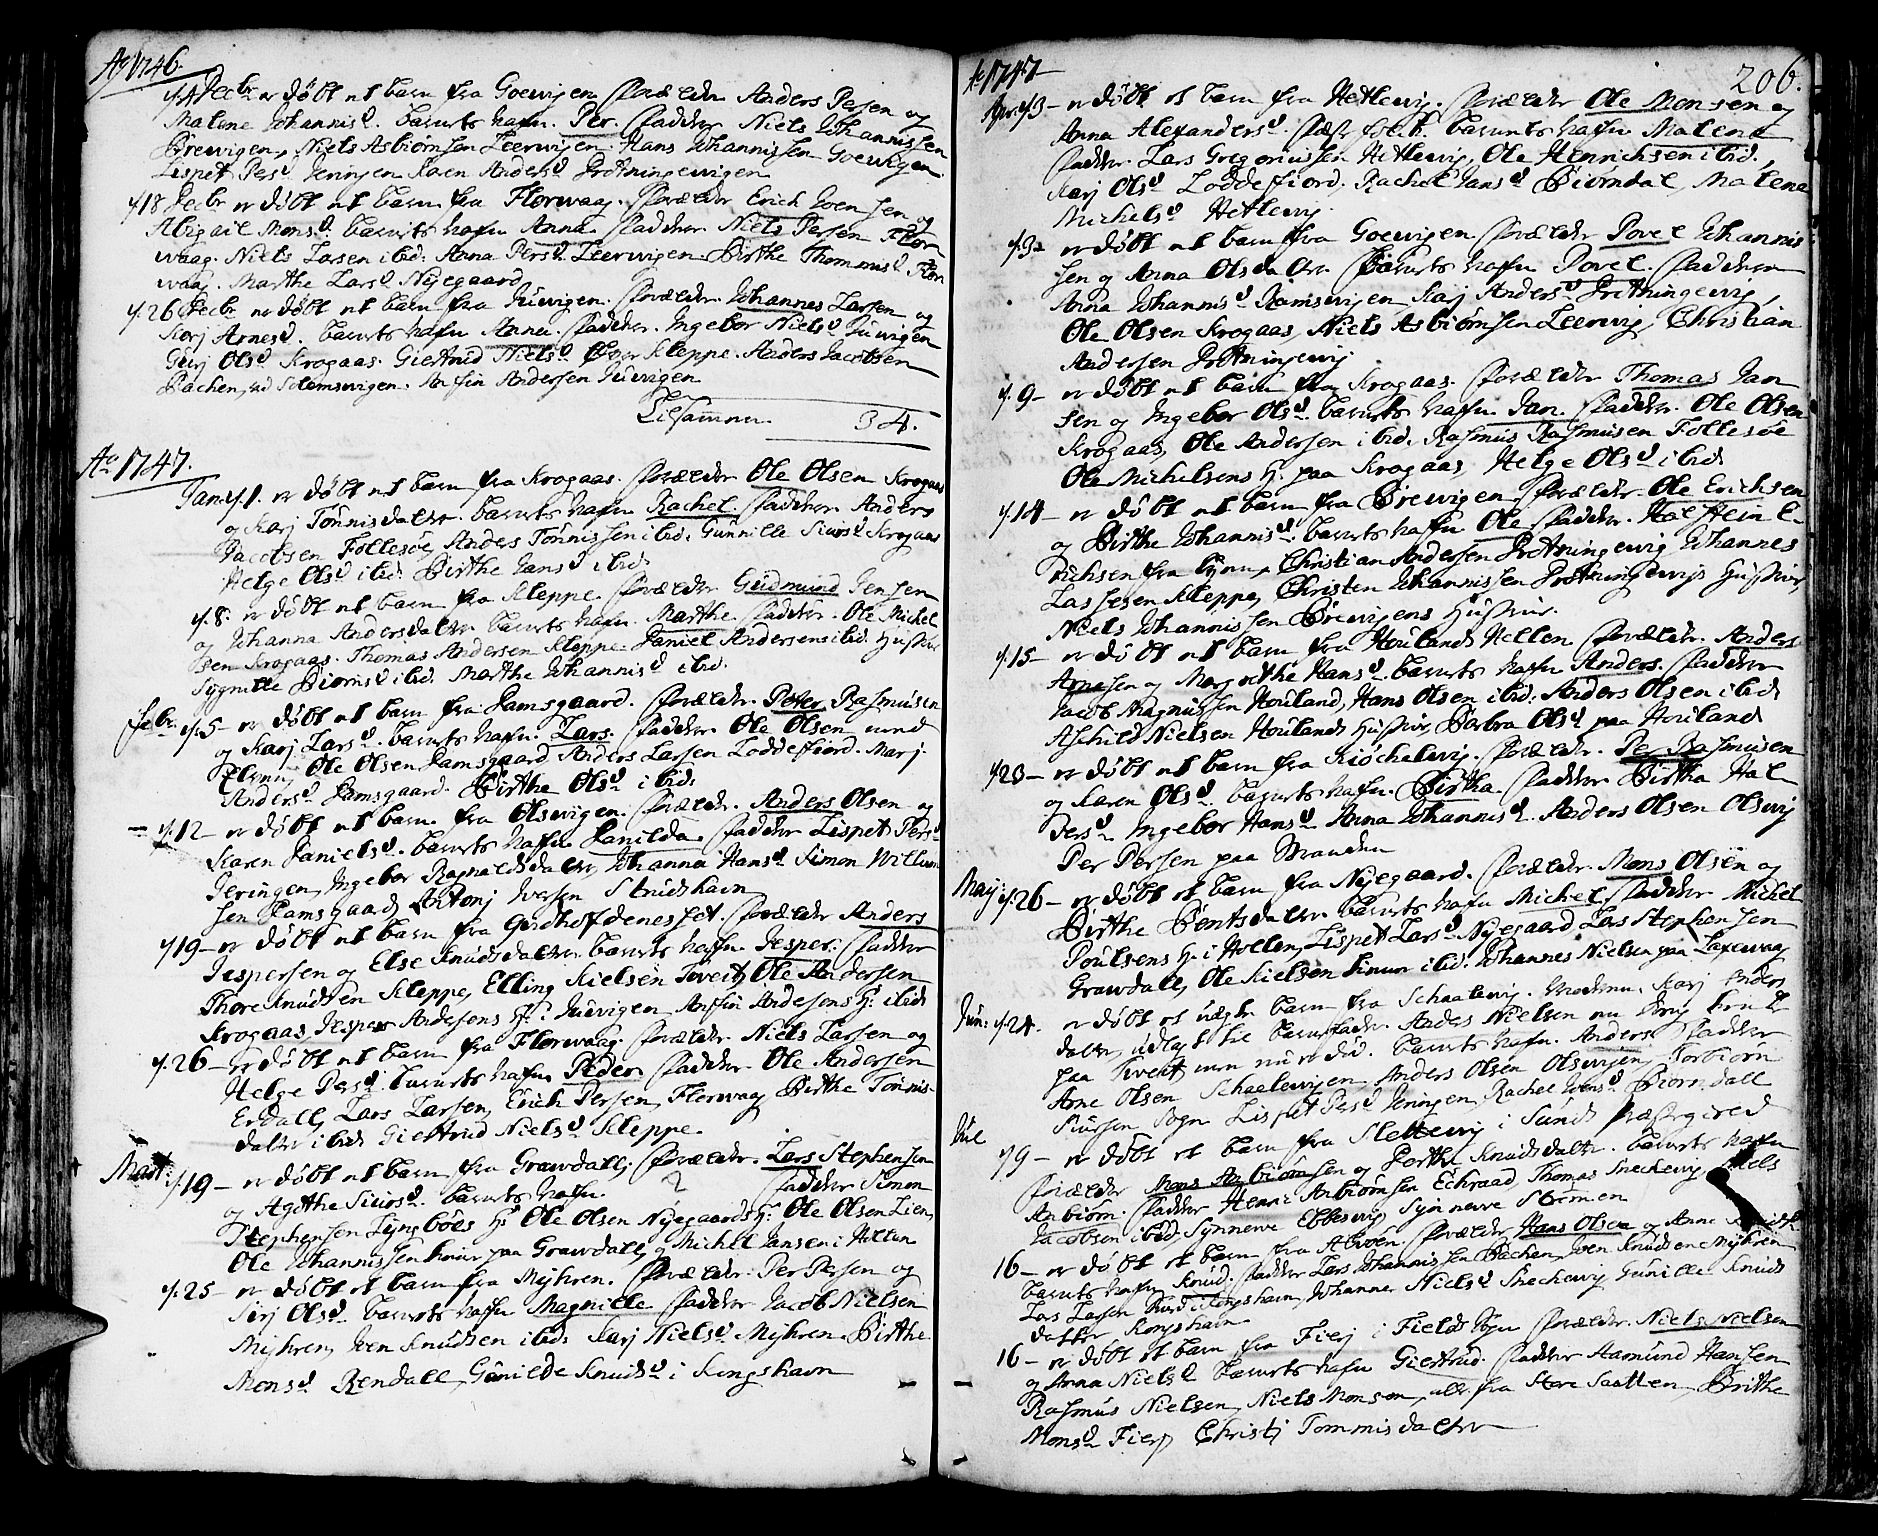 Ao 1746.
4 Decbr er døbt et barn fra Goewigen forældre Anders Persen og
Malene Johannisd. barnets nafn Per. fadder Niels Johannissen
Brewigen, Niels Asbiørnsen Leerwigen. Hans Johannissen Goewigen
Lispet Persd Karen Andersd Drotningewigen
18 Decbr er døbt et barn fra Florwaag. forældre Erich Joensen og
Abigail Monsd. barnets nafn Anna. fadder Niels Persen Flor
waag. Niels Larsen ibid: Anna Persd Leerwigen Birthe Thommisd Flor
waag. Marthe Larsd Nyegaard
26 Decbr er døbt et barn fra Juwigen. forældre Johannes Larsen og
Karj Arnesd. barnets nafn Anna. fadder. Ingebor Nielsd Juwigen
Gurj Olsd Krogaas. Giertrud Nielsd Kleppe. Anders Jacobsen
Bachen ved Solemswigen. Anfin Andersen Juwigen
Tilsammen 34.
Ao 1747.
Jan: 1. er døbt et barn fra Krogaas. forældre Ole Olsen Krogaas
og Karj Tønnisdatter barnets nafn Rachel. fadder Anders
Jacobsen Follesøe, Anders Tønnissen ibid: Gunnille Siursd Krogaas
Helge Olsd ibid: Birthe Jansd ibid:
8. er døbt et barn fra Kleppe. forældre Gudmund Jensen
og Johanna Andersdatter barnets nafn. Marthe fadder. Ole Michel
sen Krogaas. Thomas Andersen Kleppe. Daniel Andersens ibid: Hustrue
Sygnille Biørnsd ibid: Marthe Johannisd ibid.
Febr. 5 er døbt et barn fra Damsgaard. forældre. Peter Rasmusen
og Karj Larsd. barnets nafn. Lars. fadder. Ole Olsen
Ole Olsen Damsgaard Anders Larsen Loddefiord. Marj
Andersd Damsgaard. Birthe Olsd ibid:
12 er døbt et barn fra Olswigen. forældr. Anders Olsen og
Karen Danielsd. barnets nafn Danilda. fadder Lispet Persd
Ingebor Ragnaldsdatter, Johanna Hansd Simon Willum
sen Damsgaard, Antonj Iversen Strudshavn
19 er døbt et barn fra forældre Anders
Jespersen og Else Knudsdatter barnets nafn. Jesper. fadder
Thore Knudsen Kleppe, Elling Nielsen Tveit, Ole Andersen
Krogaas, Jesper Andersens H: i Juwigen Anfin Andersens H: ibid
26 er døbt et barn fra Florwaag. forældre. Niels Larsen og
Helge Persd. barnets nafn Peder fadder Ole Andersen
Erdall, Lars Larsen, Erich Persen, Florwaag Birthe Tønnis
datter ibid: Giertrud Nielsd Kleppe.
Mart: 19 er døbt et barn fra Grawdall. forældre. Lars Stephensen
og Agethe Siursd. barnets nafn. ? fadder Simon
Stephensen Lyngbøes H: Ole Olsen Nyegaards H: Ole Olsen Lien,
Ole Johannissen paa Grawdall, og Michel Jansen i Holten
25 er døbt et barn fra Myhren. forældre Per Persen og
Sirj Olsd. barnets nafn Magnille fadder Jacob Nielsen
Myhren, Iven Knudsen ibid: Karj Nielsd Myhren. Birthe
Monsd Rendall, Gunilde Knudsd i Kongshavn
206.
Ao 1747
Apr: 3 er døbt et barn fra Hetlewig. forældre Ole Monsen og
Anna Alexandersd. barnets nafn Malene
fadder Lars Gregoriussen Hetlewig, Ole Henrichsen ibid:
Karj Olsd Loddefiord. Rachel Jansd Biørndal, Malene
Michelsd Hetlewig.
3. er døbt et barn fra Goewigen forældre Povel Johannis
sen og Anna Olsda barnets nafn Povel. fadderne
Anna Johannisd Ramswigen Karj Andersd Drotningewig,
Ole Olsen Krogaas, Niels Asbiørnsen Leerwig, Christian
Andersen Drotningewig
9 er døbt et barn fra Krogaas. forældre Thomas Jan
sen og Ingebor Olsd barnets nafn Jan. fadder. Ole Olsen
Krogaas, Ole Andersen ibid. Rasmus Rasmusen Follesøe
Ole Michelsens H: paa Krogaas, Helge Olsd ibid
14 er døbt et barn fra Brewigen, forældre. Ole Erichsen
og Birthe Johannisd. barnets nafn Ole fadder. Halstein E
richsen fra byen, Christian Andersen Drotningewig Johannes
Lassesen Kleppe, Christen Johannissen Drotningewigs Hustrue,
Niels Johannissen Brewigens Hustrue.
15 er døbt et barn fra Houlands Hellen forældre. Anders
Arnesen og Margrethe Hansd. barnets nafn Anders. fadder
Jacob Magnussen Houland, Hans Olsen ibid: Anders Olsen ibid
Aschild Nielsen Houlands Hustrue, Barbra Olsd paa Houland
23 er døbt et barn fra Kiøchelewig. forældre. Per Rasmusen
og Karen Olsd. barnets nafn. Birtha. fadder Birtha Hal
Persd Ingebor Hansd Anna Johannisd. Anders Olsen Olswig
Per Persen paa Stranden
Maj: 26 er døbt et barn fra Nyegaard. forældre. Mons Olsen og
Birthe Bentsdatter barnets nafn Michel, fadder Michel
Poulsens H: i Holten, Lispet Larsd Nyegaard Lars Stephensen
Grawdall, Ole Nielsen ibid. Johannes Nielsen paa Laxewaag
Jun: 24. er døbt et uægte barn fra Schaalewig. Moderen. Karj Anders
datter, udlagt til barnefader Anders Nielsen
paa Tveit men nu er død. barnets nafn. Anders fadder
Arne Olsen Schaalewigen Anders Olsen Olswigen, Torbiørn
Siursen Sogn Lispet Persd Rachel Ivensd Biørndall
Jul 9 er døbt et barn fra Slettewig i Sunds Præstegield
forældre Mons Asbiørnsen og Perthe Knudsdatter. barnets nafn
Anbiørn. fadder Henric Anbiørnsen Echraad, Thomas Snechewig Niels
Jacobsen ibid, Synnewe Ebbeswig, Synnewe Strømen
16 er døbt et barn fra forældre Hans Olsen og Anne
barnets nafn Knud. fadder Lars Johannissen Bachen, Iven Knudsen Myhren
Lars Larsen Kongshavn, Johanne Nielsd Snechewig Gunille Knuds
datter Kongshavn
16 er døbt et barn fra Fierj i Fields Sogn forældre. Niels Nielsen
og Anna Nielsd barnets nafn Giertrud. fadder Aamund Hansen
Rasmus Nielsen, Niels Monsen, alle fra Store Saatten, Birthe
Monsd Fierj Christj Tommisdatter